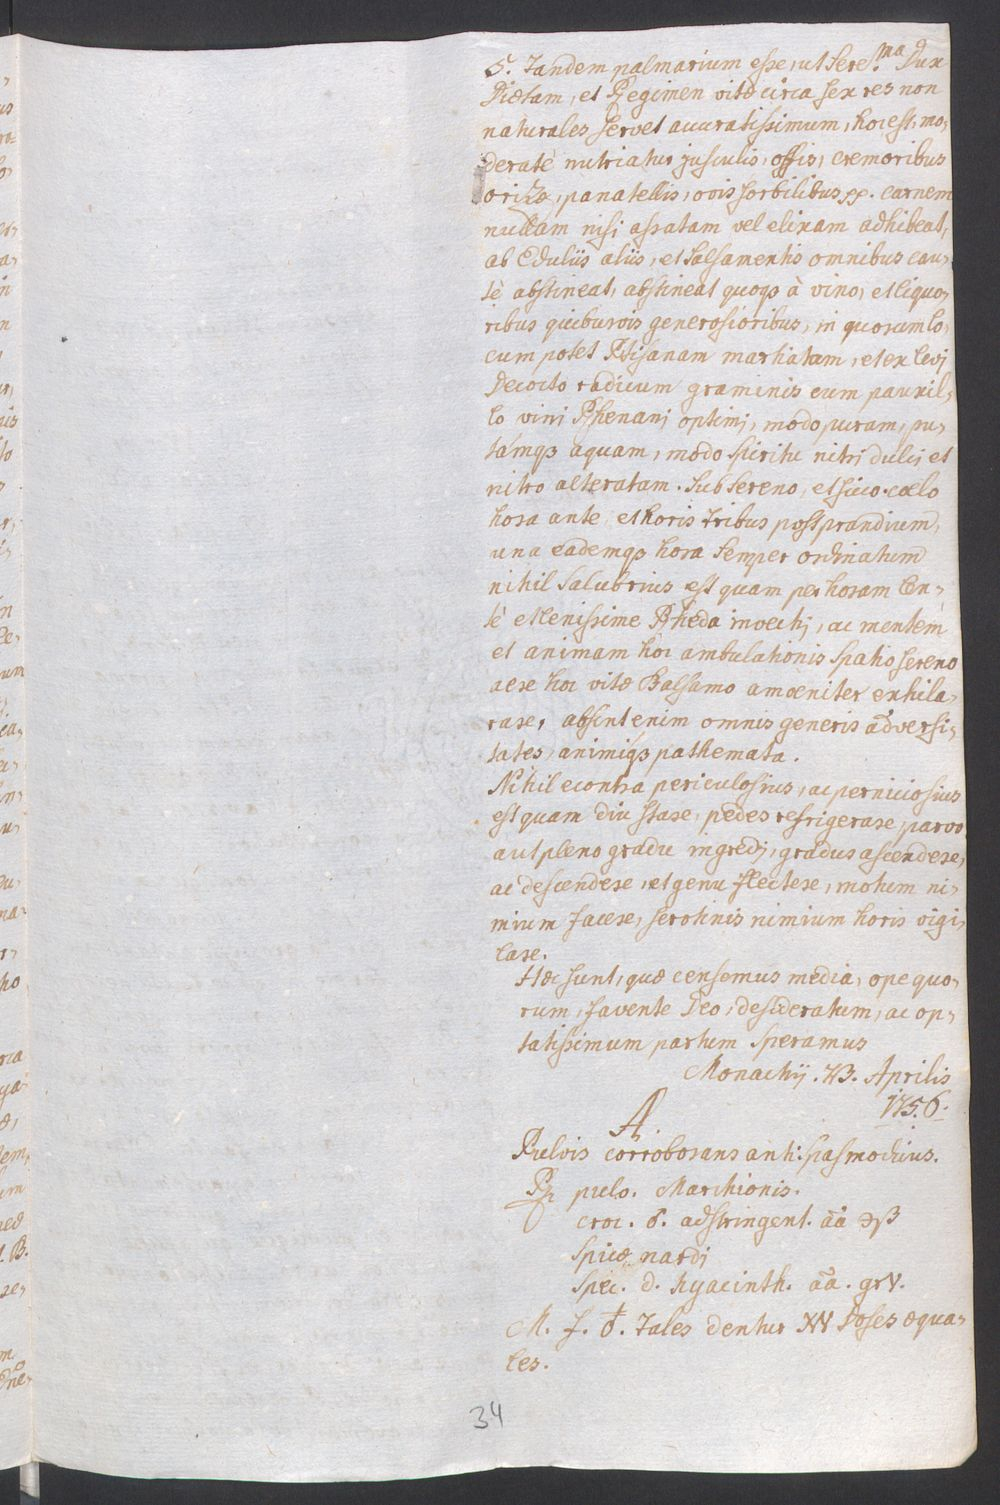 5. Tandem palmarium esse, ut Sere.ma Dux
Diætam, et Regimen vitæ circa sex res non
naturales servet accuratissimum, hoc est, mo,
deratè nutriatur jusculis, offis, cremoribus
orizæ, panatellis, ovis sorbilibus pp. carnem
nullam nisi assatam vel elixam adhibeat,
ab Eduliis aliis, et Salsamentis omnibus cau,
tè abstineat, abstineat quoqз à vino, et liquo,
ribus quibusvis generosioribus, in quorum lo,
cum potet Ptisanam martiatam, et ex levj
Decocto radicum graminis cum pauxil,
lo vini Rhenanj optimj, modo puram, pu,
támqз aquam, modo Spiritu nitri dulcj et
nitro alteratam. Sub Sereno, et sicco cœlo
hora ante, et horis tribus post prandium,
una eademqз hora Semper ordinatum
nihil Salubrius est quam per horam len,
tè et lenissime Rheda invectj, ac mentem
et animam hoc ambulationis Spatio Sereno
aere hoc vitæ Balsamo amœniter exhila,
rare, absint enim omnis generis adversi,
tates, animiqз pathemata.
Nihil econtra periculosius, ac perniciosius
est quam diu stare, pedes refrigerare, parvo
aut pleno gradu ingredj, gradus ascendere,
ac descendere, et genu flectere, motum ni,
mium facere, serotinis nimium horis vigi,
lare.
Hæc sunt, quæ censemus media, ope quo,
rum, favente Deo, desideratum, ac op,
tatissimum partum Speramus
Monachij. 23. Aprilis
1756.
A.
Pulvis corroborans anti: Spasmodicus.
Rx pulv. Marchionis.
croc. ♂. adstringent. āā ℈ß
Spicæ nardj
Spec. d. hyacinth. āā. gr V.
M. f. ♁. Tales dentur XV Doses æqua,
les.
34